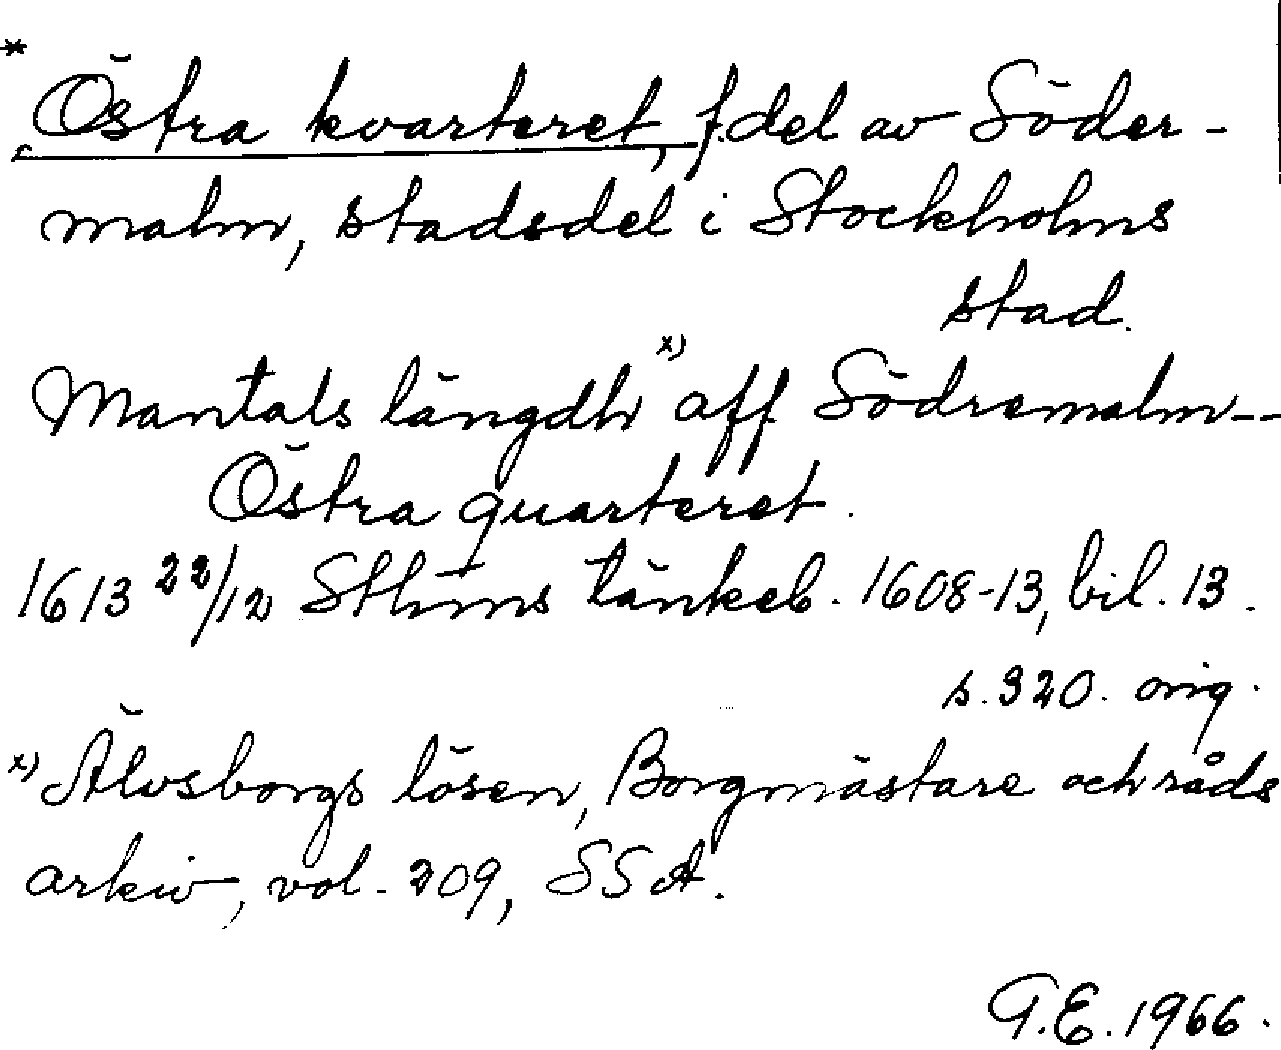 * Östra kvarteret, f. del av Söder-
malm, stadsdel i Stockholms
stad.
Mantals längdh x) aff Södremalm--
Östra quarteret.
1613 22/12 Sthms tänkeb. 1608-13, bil. 13.
s. 320. orig.
x) Älvsborgs lösen, Borgmästare och råds
arkiv, vol. 209, SSA.
G.E. 1966.